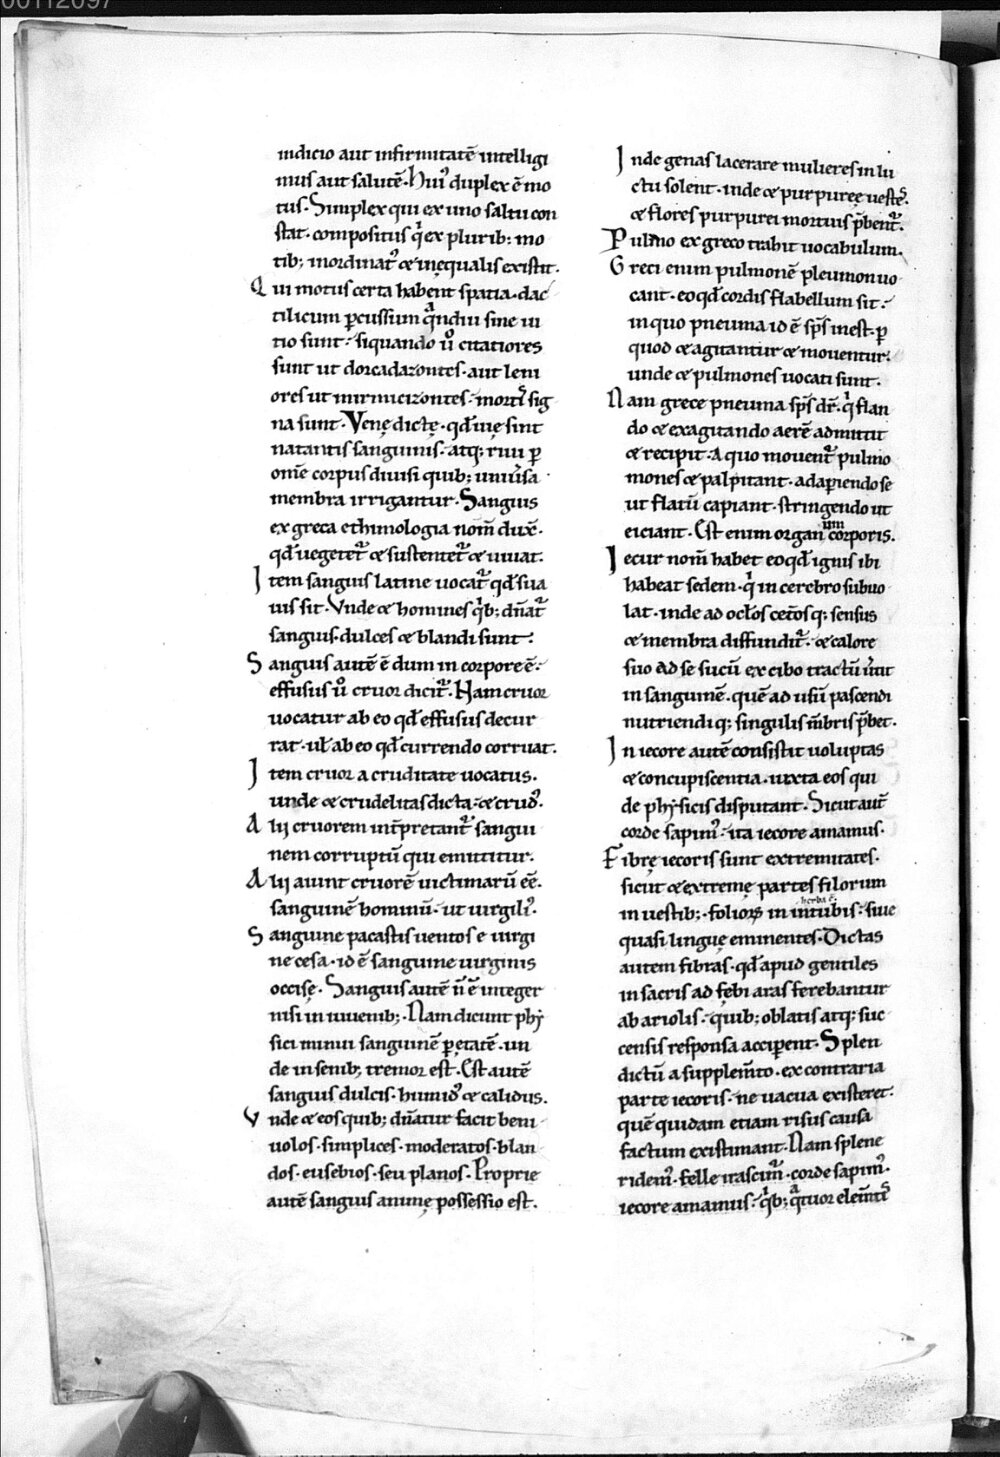 00112097
indicio aut infirmitatē intelligi
mus aut salutē. Hui᷒ duplex ē mo
tus. Simplex qui ex uno saltu con
stat. compositus qͥ ex plurib; mo
tib; inordinat᷒ & inequalis existit.
Qui motus certa habent spatia. dac
tilicum ꝑcussium qͣndiu sine ui
tio sunt. siquando ůo citatiores
sunt ut dorcadazontes. aut leni
ores ut mirmicizontes. mortis sig
na sunt. Venę dictę. qđ uię sint
natantis sanguinis. atq; riui ꝑ
omē corpus diuisi quib; uniūsa
membra irrigantur. Sanguis
ex greca ethimologia nom̄ duxē.
qđ uegetet᷑ & sustentet᷑ & uiuat.
Item sanguis latine uocat᷑ qđ sua
uis sit. Vnde & homines qͥb; dn̄at᷑
sanguis. dulces & blandi sunt.
Sanguis autē ē dum in corpore ē.
effusus ůo cruor dicit᷑. Nam cruor
uocatur ab eo qđ effusus decur
rat. uł ab eo qđ currendo corruat.
Item cruor a cruditate uocatus.
unde & crudelitas dicta. & crud᷒.
Alij cruorem int̄pretant᷑ sangui
nem corruptū qui emittitur.
Alij aiunt cruorē uictimarū eē.
sanguinē hominū. ut uirgili᷒.
Sanguine pacastis uentos e uirgi
ne cesa. id ē sanguine uirginis
occisę. Sanguis autē ñ ē integer
nisi in iuuenib;. Nam dicunt phy
sici minui sanguinē ꝑ ętatē. un
de in senib; tremor est. Est autē
sanguis dulcis. humid᷒ & calidus.
Vnde & eos quib; dn̄atur facit beni
uolos. simplices. moderatos. blan
dos. eusebios. seu planos. Proprie
autē sanguis animę possessio est.
Inde genas lacerare mulieres in lu
ctu solent. inde & purpureę uestes.
& flores purpurei mortuis p̄bent᷑.
Pulmo ex greco trahit uocabulum.
Greci enim pulmonē pleumon uo
cant. eo qđ cordis flabellum sit.
in quo pneuma id ē sp̄s inest. ꝑ
quod & agitantur & mouentur.
unde & pulmones uocati sunt.
Nam grece pneuma sp̄s dr̄. qͥ flan
do & exagitando aerē admittit
& recipit. A quo mouent᷑ pulmo
mones & palpitant. adaꝑiendo se
ut flatū capiant. stringendo ut
eiciant. Est enim organum corporis.
Iecur nom̄ habet eo qđ ignis ibi
habeat sedem. qͥ in cerebro subuo
lat. inde ad ocłos cet̄osq; sensus
& membra diffundit᷑. & calore
suo ad se sucū ex cibo tractū ūtit
in sanguinē. quē ad usū pascendi
nutriendiq; singulis m̄bris p̄bet.
In iecore autē consistit uoluptas
& concupiscentia. iuxta eos qui
de physicis disputant. Sicut aut̄
corde sapim᷒. ita iecore amamus.
Fibrę iecoris sunt extremitates.
sicut & extremę partes filorum
herba ē
in uestib;. folioꝝ in intubis. siue
quasi linguę eminentes. Dictas
autem fibras. qđ apud gentiles
in sacris ad febi aras ferebantur
ab ariolis. quib; oblatis atq; suc
censis responsa acciꝑent. Splen
dictū a supplem̄to. ex contraria
parte iecoris. ne uacua existeret.
quē quidam etiam risus causa
factum existimant. Nam splene
ridem᷒. felle irascim᷒. corde sapim᷒.
iecore amamus. qͥb; qͣtuor elem̄tis